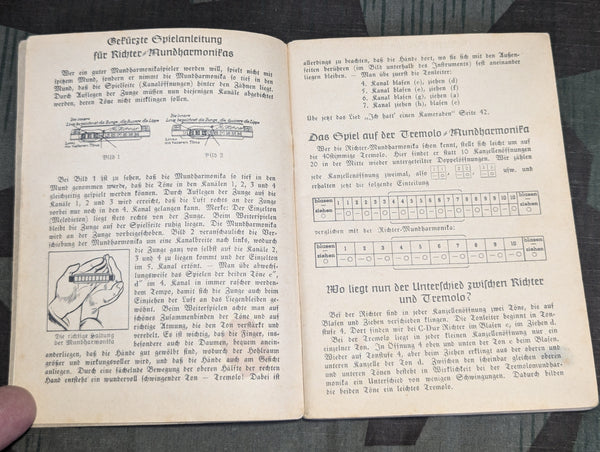 Gekürzte Spielanleitung
für Richter-Mundharmonikas
Wer ein guter Mundharmonikaspieler werden will, spielt nicht mit
spitzem Mund, sondern er nimmt die Mundharmonika so tief in den
Mund, daß die Spielseite (Kanalöffnungen) hinter den Zähnen liegt.
Durch Auflegen der Zunge müssen nun diejenigen Kanäle abgedichtet
werden, deren Töne nicht mitklingen sollen.
Die innere
Linie bezeichnet die Zunge, die äussere die Lippe
Die innere
Linie bezeichnet die Zunge, die äussere die Lippe
Bild 1
Bild 2
Bei Bild 1 ist zu sehen, daß die Mundharmonika so tief in den
Mund genommen wurde, daß die Töne in den Kanälen 1, 2, 3 und 4
gleichzeitig gespielt werden können. Durch Auflegen der Zunge auf die
Kanäle 1, 2 und 3 wird erreicht, daß die Luft rechts an der Zunge
vorbei nur noch in den 4. Kanal gelangen kann. Merke: Der Einzelton
(Melodieton) liegt stets rechts von der Zunge. Beim Weiterspielen
bleibt die Zunge auf der Spielseite ruhig liegen. Die Mundharmonika
wird an der Zunge vorbeigeschoben. Bild 2 veranschaulicht die Ver-
schiebung der Mundharmonika um eine Kanalbreite nach links, wodurch
die Zunge ganz von selbst auf die Kanäle 2,
3 und 4 zu liegen kommt und der Einzelton
im 5. Kanal ertönt. — Man übe abwechs-
lungsweise das Spielen der beiden Töne e",
d" im 4. Kanal in immer rascher werden-
dem Tempo, damit sich die Zunge auch beim
Einziehen der Luft an das Liegenbleiben ge-
wöhnt. Beim Weiterspielen achte man auf
schönes Zusammenbinden der Töne und auf
richtige Atmung, die den Ton verstärkt und
veredelt. Es ist wichtig, daß die Finger, ins-
besondere auch die Daumen, bequem anein-
anderliegen, daß die Hände gut gewölbt sind, wodurch der Hohlraum
größer und wirkungsvoller wird, und daß die Hände auch am Gesicht
anliegen. Durch eine fächelnde Bewegung der oberen Hälfte der rechten
Hand entsteht ein wundervoll schwingender Ton — Tremolo! Dabei ist
Die richtige Haltung
der Mundharmonika
allerdings zu beachten, daß die Hände dort, wo sie sich mit den Außen-
seiten berühren (im Bild unterhalb des Instruments) fest aneinander
liegen bleiben. — Man übe zuerst die Tonleiter:
4. Kanal blasen (c), ziehen (d)
5. Kanal blasen (e), ziehen (f)
6. Kanal blasen (g), ziehen (a)
7. Kanal ziehen (h), blasen (c)
Übe jetzt das Lied „Ich hatt' einen Kameraden" Seite 42.
Das Spiel auf der Tremolo-Mundharmonika
Wer die Richter-Mundharmonika schon kennt, stelle sich leicht um auf
die 40stimmige Tremolo. Hier findet er statt 10 Kanzellenöffnungen
deren 20 in der Mitte wieder untergeteilter Doppelöffnungen. Wir zählen
jede Kanzellenöffnung zweimal, also usw. und
erhalten jetzt die folgende Einteilung
blasen
ziehen
blasen
ziehen
verglichen mit der Richter-Mundharmonika:
blasen 1 2 3 4 5 6 7 8 9 10 blasen
ziehen
ziehen
Wo liegt nun der Unterschied zwischen Richter
und Tremolo?
Bei der Richter sind in jeder Kanzellenöffnung zwei Töne, die auf
Blasen und Ziehen verschieden klingen. Die Tonleiter beginnt in Ton-
stufe 4. Dort finden wir bei C-Dur Richter im Blasen c, im Ziehen d.
Bei der Tremolo liegt in jeder kleinen Kanzellenöffnung nur ein
einzelner Ton. In Öffnung 4 oben und unten der Ton c beim Blasen.
Wieder auf Tonstufe 4, aber beim Ziehen erklingt aus der oberen und
unteren Kanzelle der Ton d. Zwischen den scheinbar gleichen oberen
und unteren Tönen besteht in Wirklichkeit bei der Tremolomundhar-
monika ein Unterschied von wenigen Schwingungen. Dadurch bilden
die beiden Töne ein leichtes Tremolo.